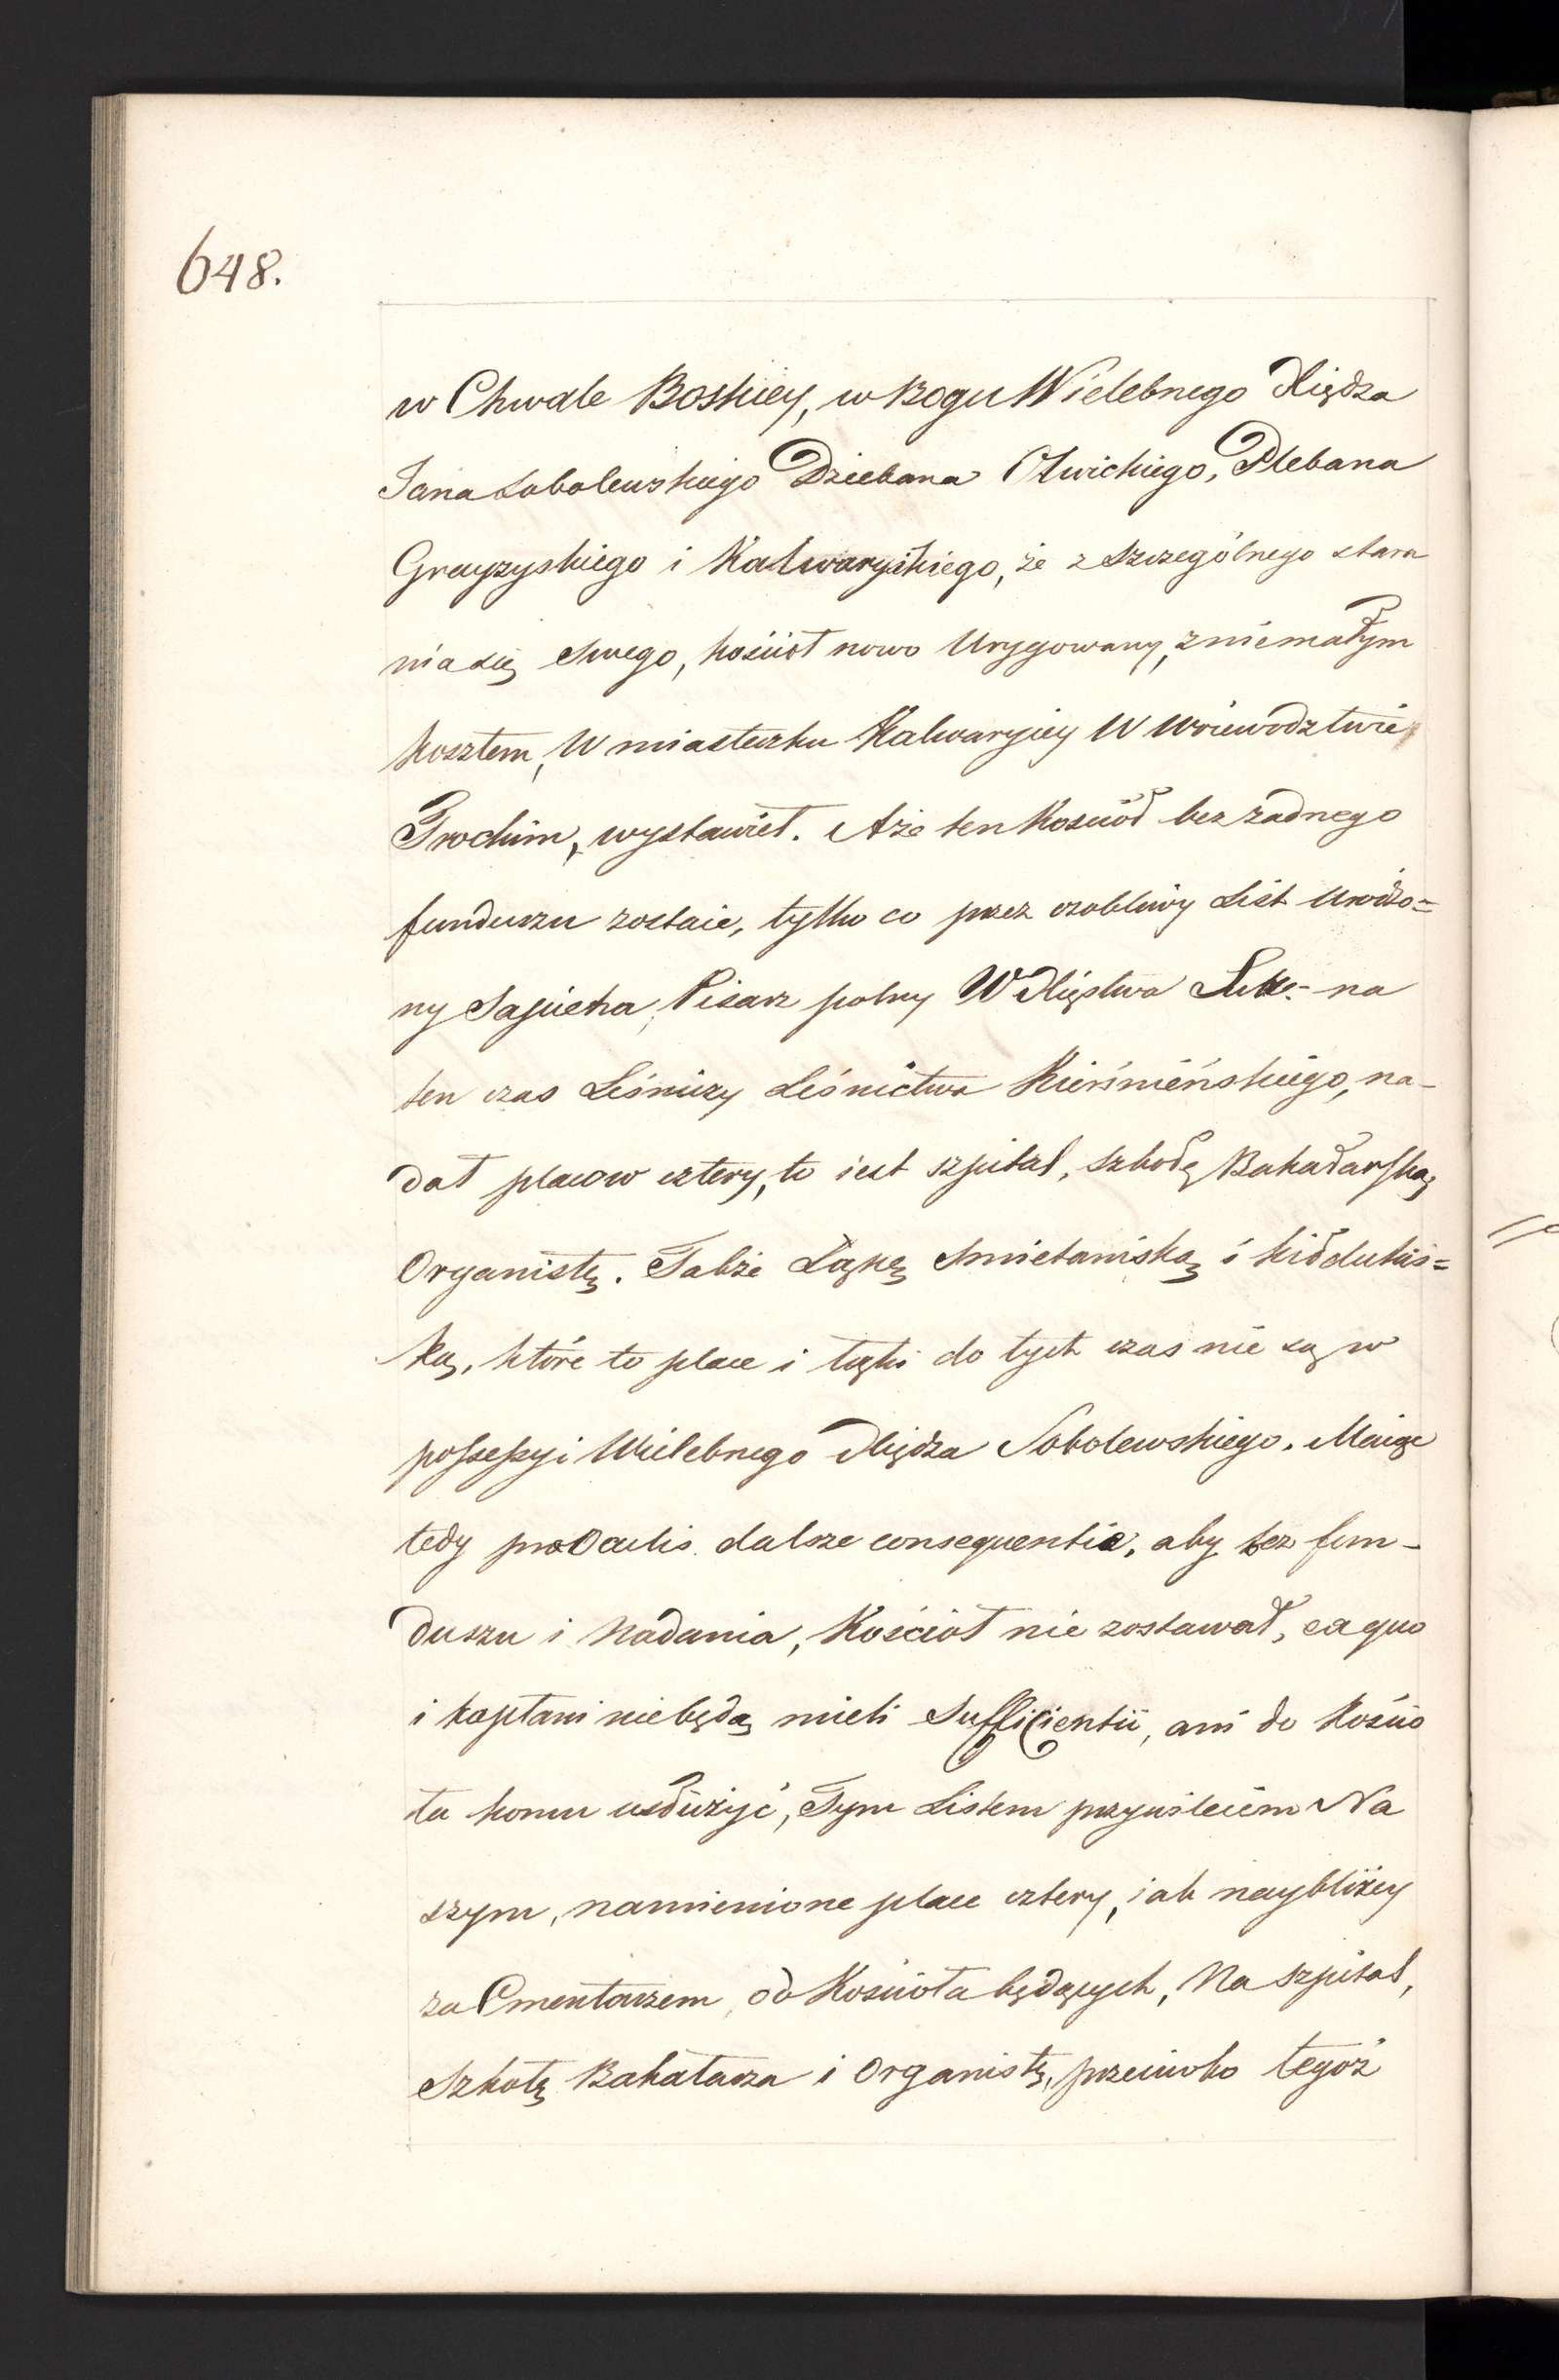 648.
w Chwale Boskiey, w Bogu Wielebnego Xiędza
Jana Sobolewskiego Dziekana Olwickiego, Plebana
Grayzyskiego i Kalwaryiskiego, że z szczególnego stara
nia się swego, kościoł nowo Urygowany, z niemałym
kosztem, W miasteczku Kalwaryiey W Woiewodztwie
Trockim, wystawieł. Aże ten Kosciół bez żadnego
funduszu zostaie, tylko co przez osobliwy List Urodzo=
ny Sapieha, Pisarz polny W Xięstwa Litte:- na
ten czas Leśniczy Leśnictwa Mierśnieńskiego, na-
dał placow cztery, to iest szpital, szkołę Bakałarską
Organistę. Także Łąkę Smietaniską i Kiddukis=
ką, które to place i łąki do tych czas nie są w
possessyi Wielebnego Xiędza Sobolewskiego. Maiąc
tedy prae Oculis dalsze consequentie, aby bez fun-
duszu i Nadania, Kościoł nie zostawał, ea quo
i kapłani niebędą mieli Sufficientii, ani do Kościo
ła komu usłużyć, Tym Listem przywileiem Na
szym, namienione place cztery, iak naybliżey
za Cmentarzem od Kościoła będących, Na szpital,
Szkołę Bakałarza i Organistę, przeciwko tegoż